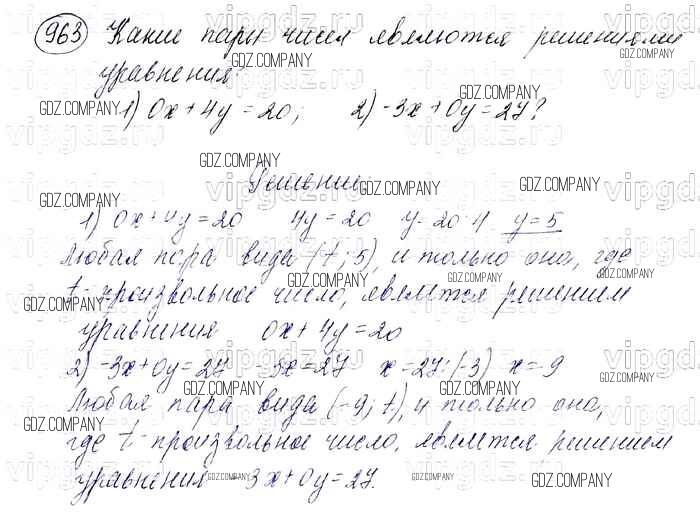 963 Какие пары чисел являются решениями
уравнения:
1) 0x + 4y = 20; 2) -3x + 0y = 27?
Решение
1) 0x + 4y = 20 4y = 20 y = 20:4 y = 5
Любая пара вида (t; 5), и только она, где
t - произвольное число, является решением
уравнения 0x + 4y = 20
2) -3x + 0y = 27 -3x = 27 x = 27:(-3) x = -9
Любая пара вида (-9; t), и только она,
где t - произвольное число, является решением
уравнения -3x + 0y = 27.
GDZ.COMPANY
vipgdz.ru